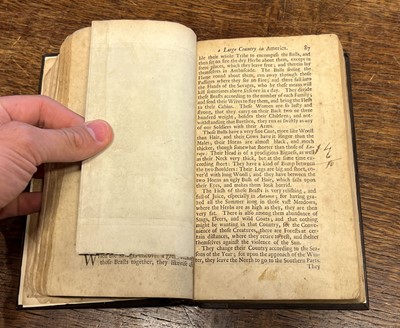 a Large Country in America. 87
ble their whole Tribe to encompass the Bulls, and
then set on fire the dry Herbs about them, except in
some places, which they leave free; and therein lay
themselves in Ambuscade. The Bulls seeing the
Flame round about them, run away through those
Passages where they see no Fire; and there fall into
the Hands of the Savages, who by these means will
kill sometimes above sixscore in a day. They divide
these Beasts according to the number of each Family;
and send their Wives to flay them, and bring the Flesh to
their Cabins. These Women are so lusty and
strong, that they carry on their Back two or three
hundred weight, besides their Children; and not-
withstanding that Burthen, they run as swiftly as any
of our Soldiers with their Arms.
Those Bulls have a very fine Coat, more like Wooll
than Hair, and their Cows have it longer than the
Males; their Horns are almost black, and much
thicker, though somewhat shorter than those of Eu-
rope: Their Head is of a prodigious Bigness, as well
as their Neck very thick, but at the same time ex-
ceeding short: They have a kind of Bump between
the two Shoulders: Their Legs are big and short, co-
ver'd with long Wooll; and they have between the
two Horns an ugly Bush of Hair, which falls upon
their Eyes, and makes them look horrid.
The Flesh of these Beasts is very relishing, and
full of Juice, especially in Autumn; for having gra-
zed all the Summer long in those vast Meadows,
where the Herbs are as high as they, they are then
very fat. There is also among them abundance of
Stags, Deers, and wild Goats; and that nothing
might be wanting in that Country, for the Conve-
nience of those Creatures, there are Forests at cer-
tain distances, where they retire to rest, and shelter
themselves against the violence of the Sun.
They change their Country according to the Sea-
sons of the Year; for upon the approach of the Win-
ter, they leave the North to go to the Southern Parts.
They
When the
these Beasts together, they